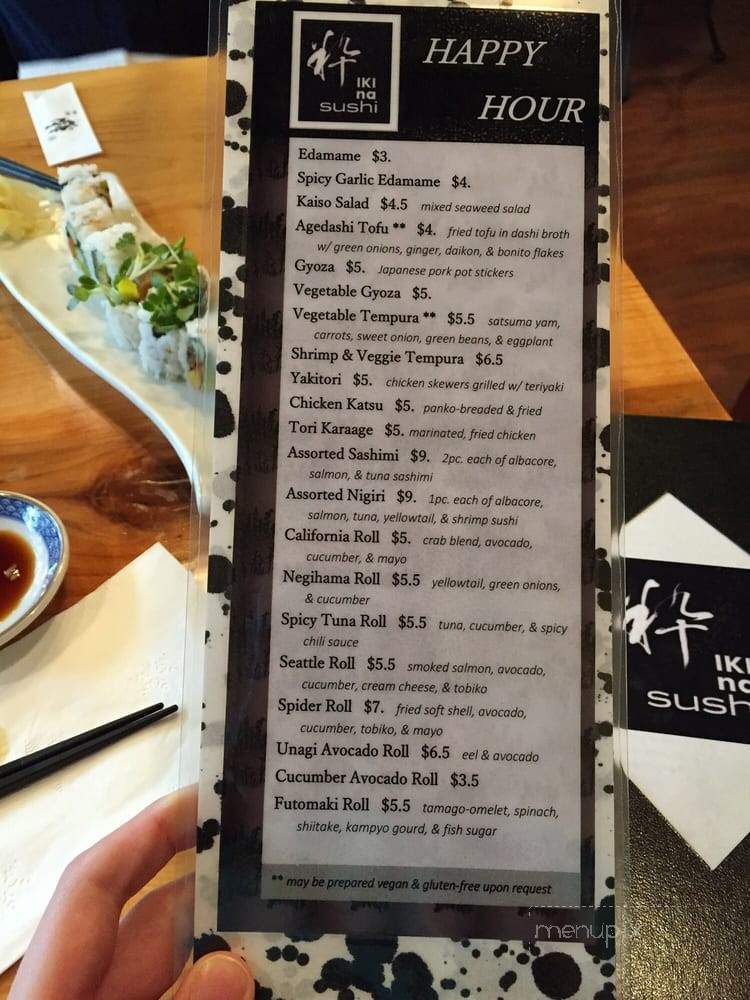 粋
IKI
na
sushi
HAPPY
HOUR
Edamame $3.
Spicy Garlic Edamame $4.
Kaiso Salad $4.5 mixed seaweed salad
Agedashi Tofu ** $4. fried tofu in dashi broth
w/ green onions, ginger, daikon, & bonito flakes
Gyoza $5. Japanese pork pot stickers
Vegetable Gyoza $5.
Vegetable Tempura ** $5.5 satsuma yam,
carrots, sweet onion, green beans, & eggplant
Shrimp & Veggie Tempura $6.5
Yakitori $5. chicken skewers grilled w/ teriyaki
Chicken Katsu $5. panko-breaded & fried
Tori Karaage $5. marinated, fried chicken
Assorted Sashimi $9. 2pc. each of albacore,
salmon, & tuna sashimi
Assorted Nigiri $9. 1pc. each of albacore,
salmon, tuna, yellowtail, & shrimp sushi
California Roll $5. crab blend, avocado,
cucumber, & mayo
Negihama Roll $5.5 yellowtail, green onions,
& cucumber
Spicy Tuna Roll $5.5 tuna, cucumber, & spicy
chili sauce
Seattle Roll $5.5 smoked salmon, avocado,
cucumber, cream cheese, & tobiko
Spider Roll $7. fried soft shell, avocado,
cucumber, tobiko, & mayo
Unagi Avocado Roll $6.5 eel & avocado
Cucumber Avocado Roll $3.5
Futomaki Roll $5.5 tamago-omelet, spinach,
shiitake, kampyo gourd, & fish sugar
** may be prepared vegan & gluten-free upon request
粋
IKI
na
sushi
menupix